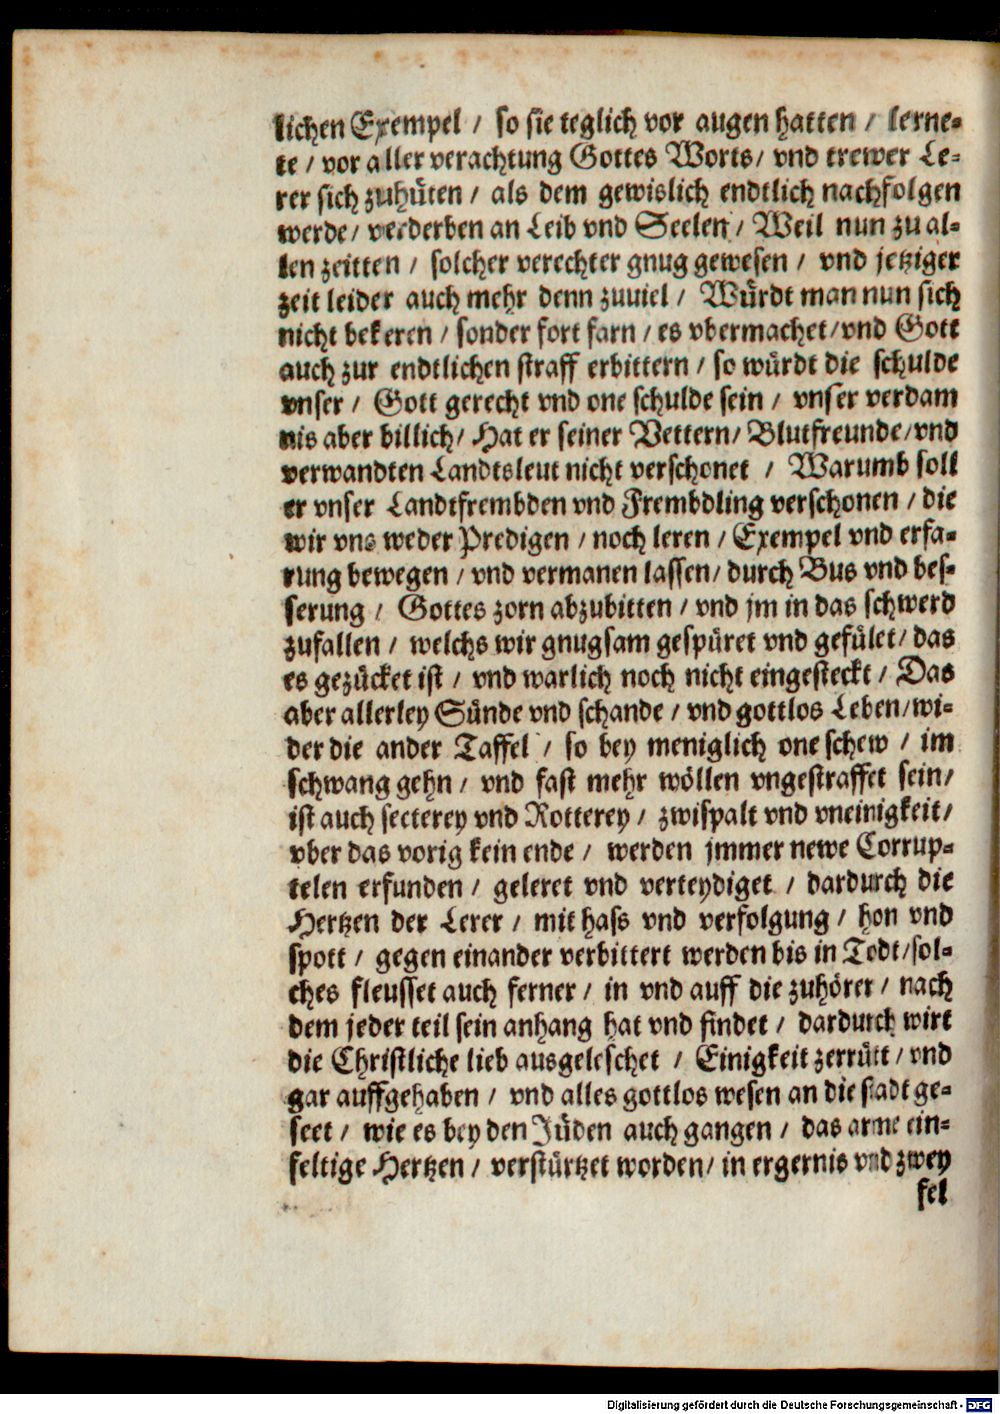 lichen Exempel / so sie teglich vor augen hatten / lerne-
te / vor aller verachtung Gottes Worts / vnd trewer Le-
rer sich zuhüten / als dem gewislich endtlich nachfolgen
werde / verderben an Leib vnd Seelen / Weil nun zu al-
len zeitten / solcher verechter gnug gewesen / vnd jetziger
zeit leider auch mehr denn zuuiel / Würdt man nun sich
nicht bekeren / sonder fort farn / es vbermachet / vnd Gott
auch zur endtlichen straff erbittern / so würdt die schulde
vnser / Gott gerecht vnd one schulde sein / vnser verdam
nis aber billich / Hat er seiner Vettern / Blutfreunde / vnd
verwandten Landtsleut nicht verschonet / Warumb soll
er vnser Landtfrembden vnd Frembdling verschonen / die
wir vns weder Predigen / noch leren / Exempel vnd erfa-
rung bewegen / vnd vermanen lassen / durch Bus vnd bes-
serung / Gottes zorn abzubitten / vnd jm in das schwerd
zufallen / welchs wir gnugsam gespüret vnd gefület / das
es gezücket ist / vnd warlich noch nicht eingesteckt / Das
aber allerley Sünde vnd schande / vnd gottlos Leben / wi-
der die ander Taffel / so bey meniglich one schew / im
schwang gehn / vnd fast mehr wöllen vngestraffet sein /
ist auch secterey vnd Rotterey / zwispalt vnd vneinigkeit /
vber das vorig kein ende / werden jmmer newe Corrup-
telen erfunden / geleret vnd verteydiget / dardurch die
Hertzen der Lerer / mit hass vnd verfolgung / hon vnd
spott / gegen einander verbittert werden bis in Todt / sol-
ches fleusset auch ferner / in vnd auff die zuhörer / nach
dem jeder teil sein anhang hat vnd findet / dardurch wirt
die Christliche lieb ausgeleschet / Einigkeit zerrütt / vnd
gar auffgehaben / vnd alles gottlos wesen an die stadt ge-
seet / wie es bey den Jüden auch gangen / das arme ein-
feltige Hertzen / verstürtzet worden / in ergernis vnd zwey
fel
Digitalisierung gefördert durch die Deutsche Forschungsgemeinschaft - DFG